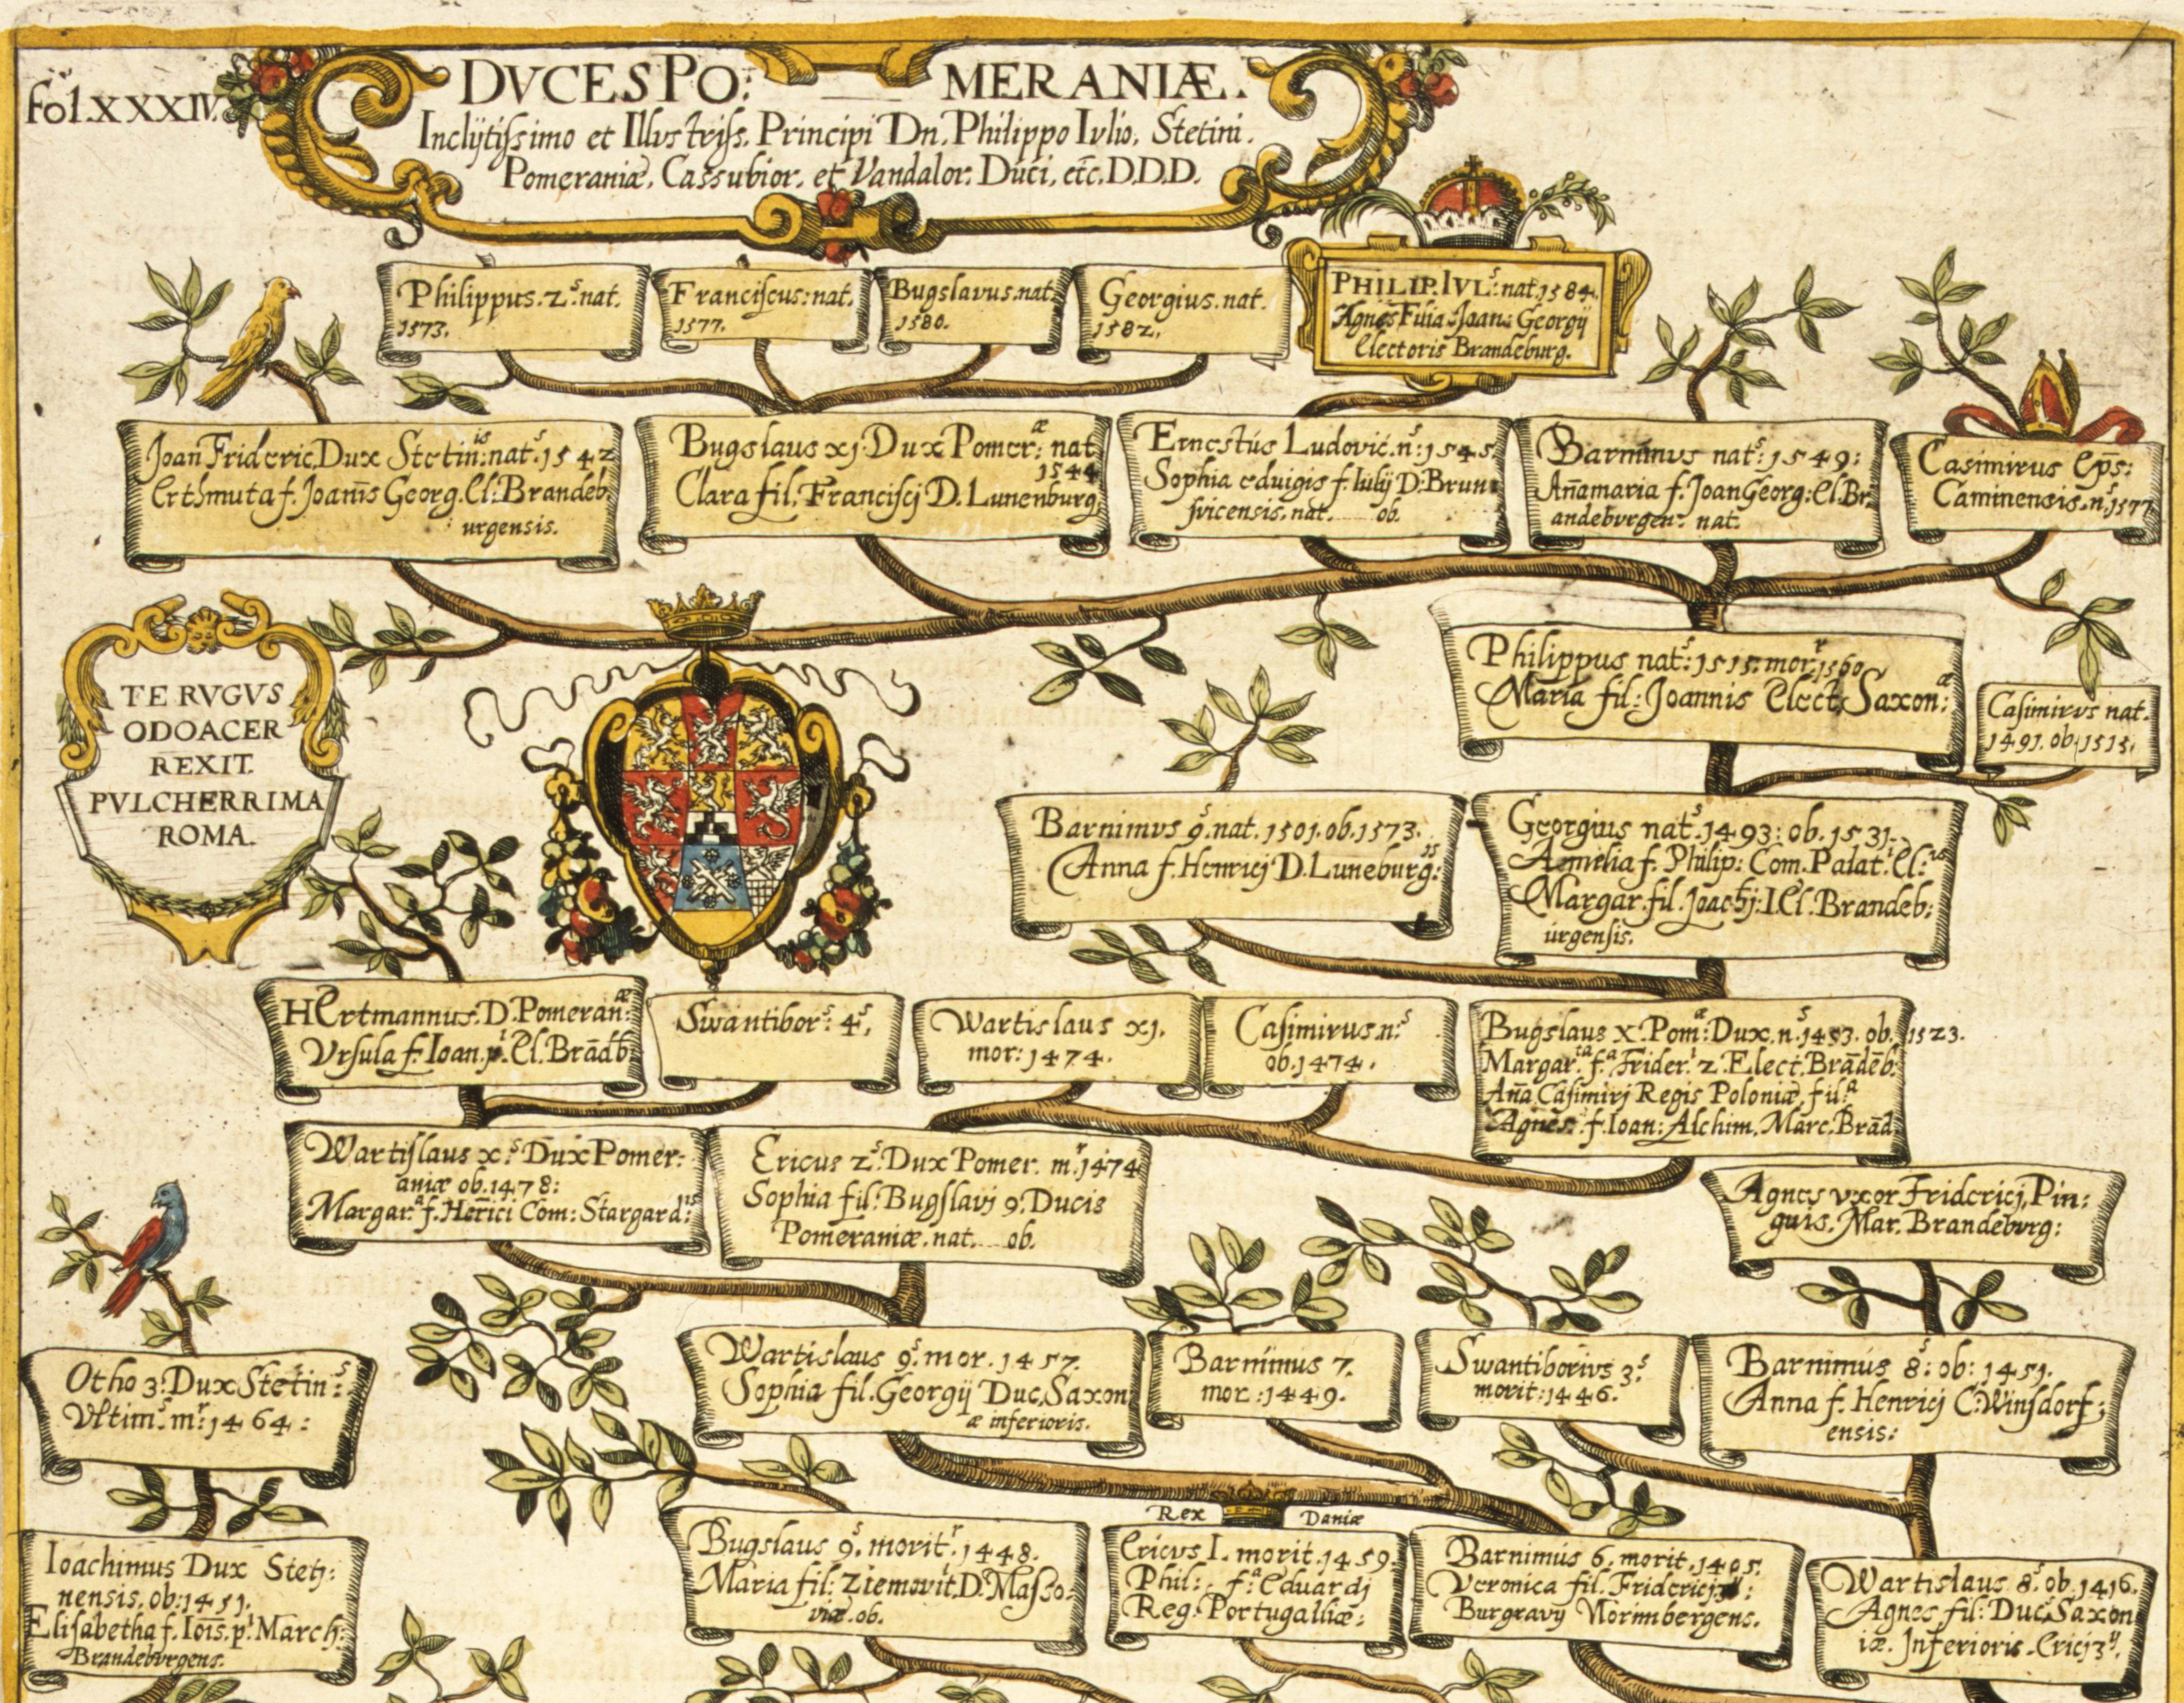 Fol. XXXIV.
DVCES PO: MERANIÆ.
Inclÿtißimo et Illustriß. Principi Dn. Philippo Iulio, Stetini.
Pomeraniæ, Cassubior. et Vandalor. Duci, etc. D.D.D.
Philippus. 2.s nat.
1573.
Franciscus: nat.
1577.
Bugslavus. nat.
1580.
Georgius. nat.
1582.
PHILIP. IVL.s nat. 1584.
Agnes Filia Joan: Georgÿ
Electoris Brandeburg.
Joan Frideric. Dux Stetin:is nat.s 1542
Erthmuta f. Joanis Georg. El: Brandeb
urgensis.
Bugslaus xj. Dux Pomer:æ nat
1544
Clara fil. Francisci D. Lunenburg
Ernestus Ludovic. n:s 1545
Sophia eduigis f. Iulÿ D: Brun
svicensis. nat. ob.
Barnimus nat:s 1549:
Añamaria f. Joan Georg: El. Br
andeburgen: nat.
Casimirus Eps:
Caminensis. n.s 1577
TE RVGVS
ODOACER
REXIT.
PVLCHERRIMA
ROMA.
Philippus nat:s 1515. mor.r 1560
Maria fil: Joannis Elect. Saxon:æ
Casimirus nat.
1491. ob. 1515.
Barnimus 9.s nat. 1501. ob. 1573.
Anna f. Henrici D. Luneburg:is
Georgius nat.s 1493: ob. 1531.
Aemelia f. Philip: Com. Palat. El:
Margar. fil. Joachj: I. El. Brandeb:
urgensis.
HErtmannus. D. Pomeran:æ
Vrsula f. Ioan. p.i El. Brādb.
Swantibor:s 4.s
Wartislaus xj.
mor: 1474.
Casimirus. n:s
ob. 1474.
Bugslaus X. Pom:æ Dux. n.s 1453. ob. 1523.
Margar.ta f.a Frider.i 2. Elect. Brādēb.
Aña Casimirj Regis Poloniæ, fil.a
Agnes: f. Ioan: Alchim. Marc. Brād.
Wartislaus x.s Dux Pomer:
aniæ ob. 1478:
Margar:a f. Herici Com: Stargard:is
Ericus 2.s Dux Pomer. m.r 1474
Sophia fil: Bugslavj 9. Ducis
Pomeraniæ. nat. ob.
Agnes vxor Fridericj, Pin:
guis. Mar. Brandeburg:
Otho 3. Dux Stetin:s
Vltim.s m:r 1464:
Wartislaus 9.s mor. 1457.
Sophia fil. Georgÿ Duc. Saxon
æ inferioris.
Barnimus 7.
mor: 1449.
Swantiborius 3.s
morit: 1446.
Barnimus 8.s ob: 1451.
Anna f. Henricj C. Winsdorf:
ensis:
Rex Daniæ
Ioachimus Dux Stetj:
nensis. ob: 1451.
Elisabetha f. Iois. p.i March:
Brandeburgens.
Bugslaus 9.s morit.r 1448.
Maria fil: Ziemovit. D. Masso:
viæ. ob.
Ericus I. morit. 1459.
Phil: f.a Eduardj
Reg. Portugalliæ:
Barnimus 6. morit. 1405.
Veronica fil. Fridericj
Burgravÿ Normbergens.
Wartislaus 8.s ob. 1416.
Agnes fil: Duc. Saxon
iæ. Inferioris. Ericj 3.ÿ